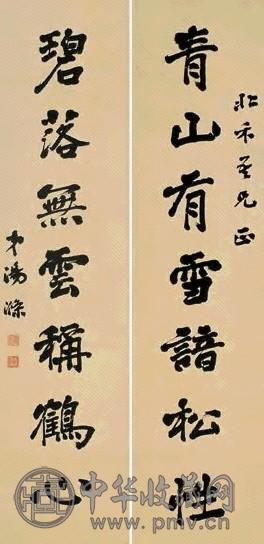 青山有雪諳松性
碧落無雲稱鶴心
弟湯滌
中华收藏网
www.pmv.cn